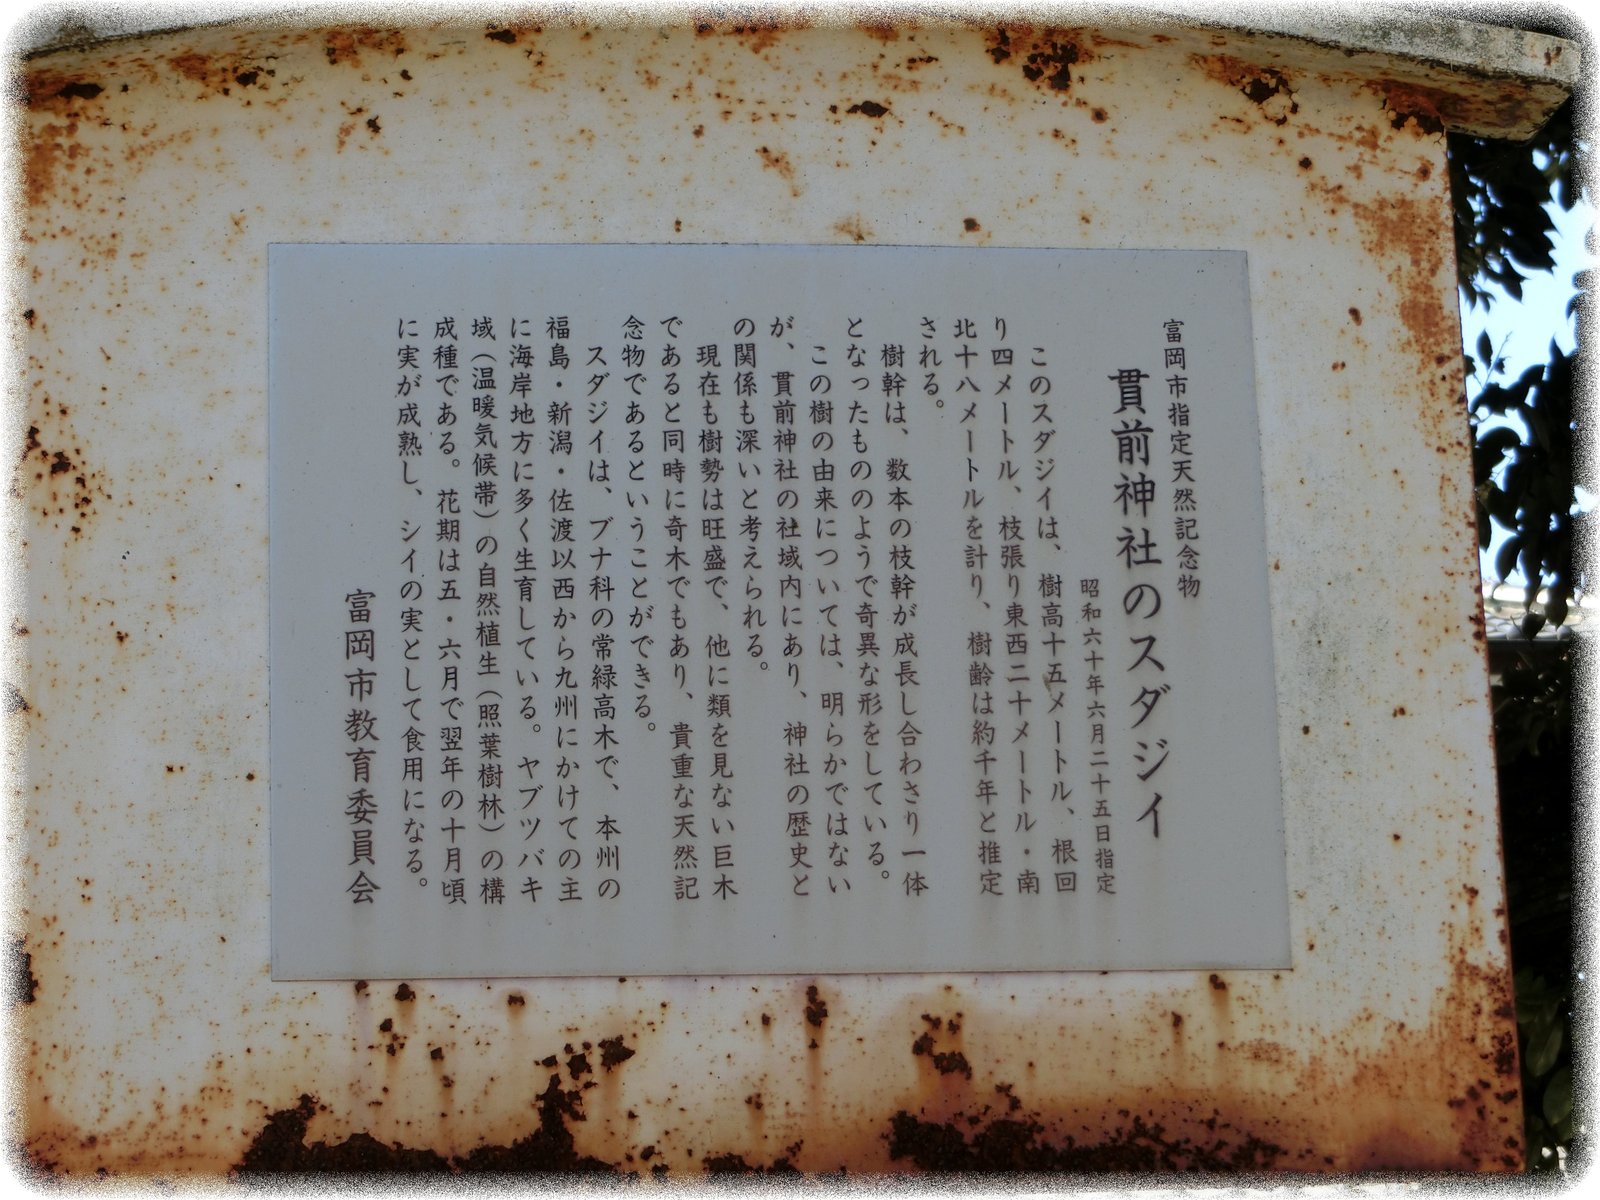 富岡市指定天然記念物
貫前神社のスダジイ
昭和六十年六月二十五日指定
このスダジイは、樹高十五メートル、根回
り四メートル、枝張り東西二十メートル・南
北十八メートルを計り、樹齢は約千年と推定
される。
樹幹は、数本の枝幹が成長し合わさり一体
となったもののようで奇異な形をしている。
この樹の由来については、明らかではない
が、貫前神社の社域内にあり、神社の歴史と
の関係も深いと考えられる。
現在も樹勢は旺盛で、他に類を見ない巨木
であると同時に奇木でもあり、貴重な天然記
念物であるということができる。
スダジイは、ブナ科の常緑高木で、本州の
福島・新潟・佐渡以西から九州にかけての主
に海岸地方に多く生育している。ヤブツバキ
域（温暖気候帯）の自然植生（照葉樹林）の構
成種である。花期は五・六月で翌年の十月頃
に実が成熟し、シイの実として食用になる。
富岡市教育委員会